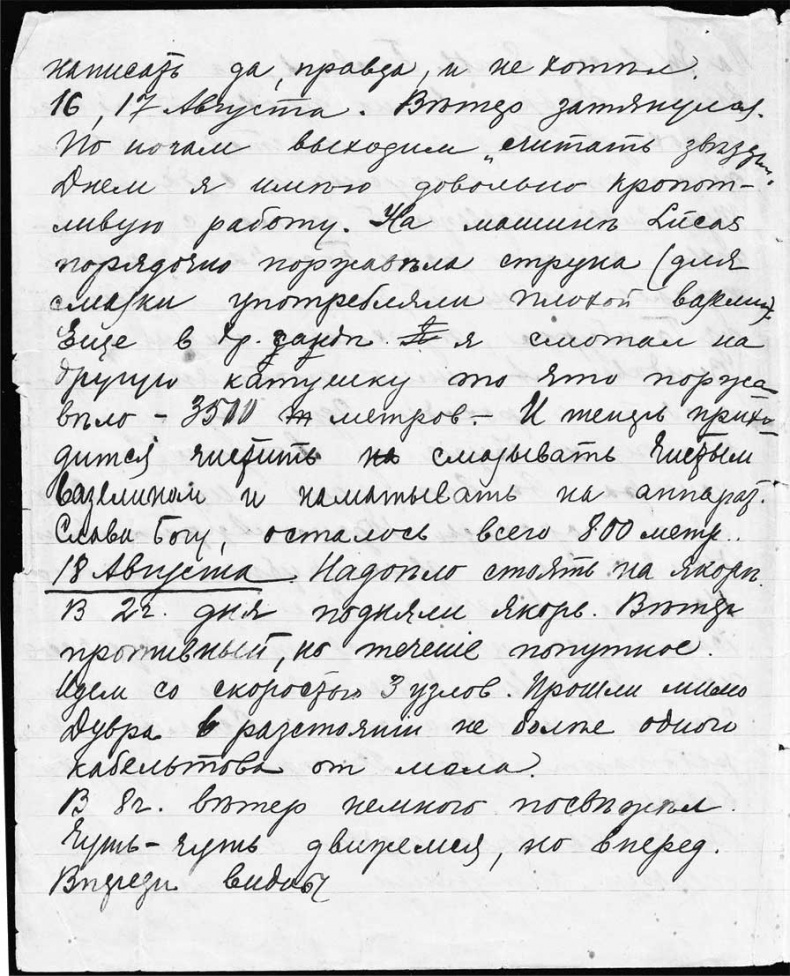 написать да, правда, и не хотѣл.
16, 17 Августа. Вѣтер затянулся.
По ночам выходим „считать звѣзды“.
Днем я имѣю довольно кропот-
ливую работу. На машинѣ Lucas
порядочно поржавѣла струна (для
смазки употребляли плохой вазелин).
Еще в я смотал на
другую катушку то что поржа-
вѣло – 3500 метров. – И теперь прихо-
дится чистить смазывать чистым
вазелином и наматывать на аппарат.
Слава Богу, осталось всего 800 метр..
18 Августа. Надоѣло стоять на якорѣ.
В 2 г. дня подняли якорь. Вѣтер
противный, но теченіе попутное.
Идем со скоростью 3 узлов. Прошли мимо
Дувра в разстояніи не болѣе одного
кабельтова от мола.
В 8 г. вѣтер немного посвѣжѣл.
Чуть-чуть движемся, но вперед.
Впереди видны